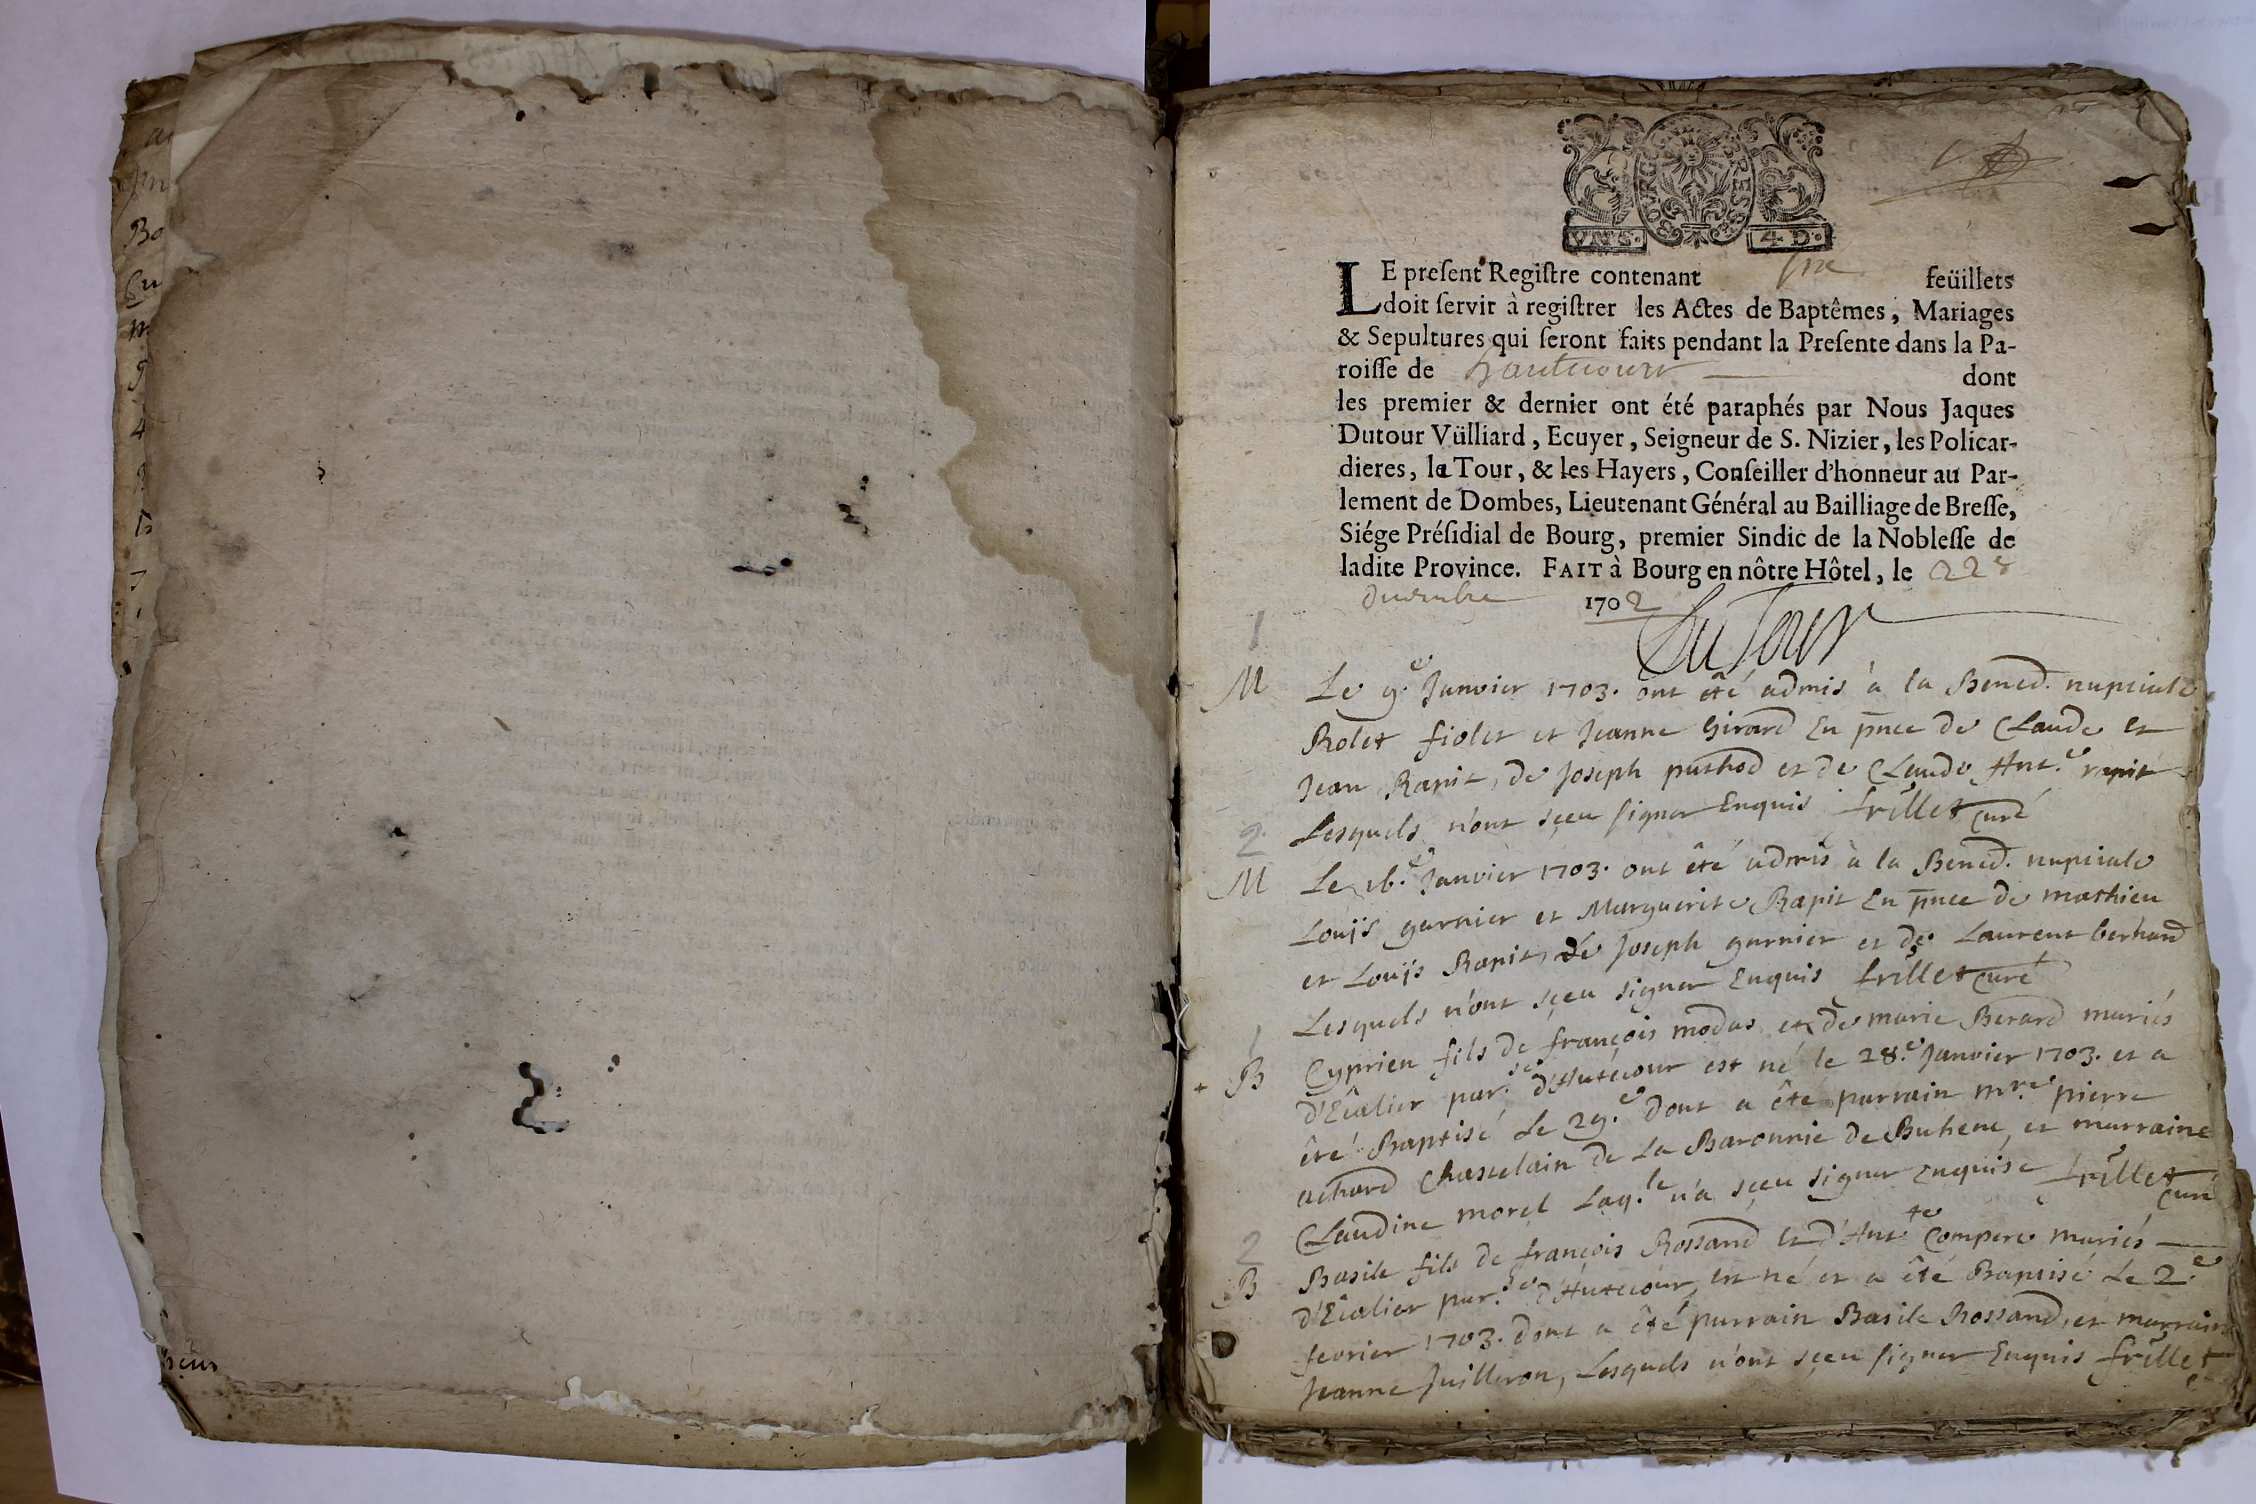 BOURG BRESSE
VN S. 4 D.
LE preſent Regiſtre contenant ſix feüillets
doit ſervir à regiſtrer les Actes de Baptêmes, Mariages
& Sepultures qui ſeront faits pendant la Preſente dans la Pa-
roiſſe de hautecourt dont
les premier & dernier ont été paraphés par Nous Jaques
Dutour Vülliard, Ecuyer, Seigneur de S. Nizier, les Policar-
dieres, la Tour, & les Hayers, Conſeiller d'honneur au Par-
lement de Dombes, Lieutenant Général au Bailliage de Breſſe,
Siége Préſidial de Bourg, premier Sindic de la Nobleſſe de
ladite Province. FAIT à Bourg en nôtre Hôtel, le 22e
decembre 1702
Du Tour
1
M Le 9.e Janvier 1703. ont été admis à la Bened. nuptiale
Rolet fiolet et Jeanne Girard En pnce de Claude et
Jean Rapit, de Joseph puthod et de Claude Ant.e rapit
Lesquels n'ont sçeu signer Enquis frillet Curé
2
M Le 16.e Janvier 1703. ont êté admis à la Bened. nuptiale
Louïs garnier et Marguerite Rapit En pnce de mathieu
et Louïs Rapit, de Joseph garnier et de Laurent berhard
Lesquels n'ont sçeu signer Enquis frillet Curé
1
+ B Cyprien fils de françois modas et de marie Berard mariés
d'Ecalier par.sse d'Hutecour est né le 28.e Janvier 1703. et a
êté Baptisé Le 29.e dont a êté parrain mre. pierre
achard Chastelain de La Baronnie de Buhenc, et marraine
Claudine morel Laq.le n'a sçeu signer Enquise frillet Curé
2
B Basile fils de françois Rossand et d'Ant.te Compere mariés
d'Ecalier par.sse d'Hutecour, est né et a êté Baptisé Le 2.e
fevrier 1703. dont a êté parrain Basile Rossand, et marraine
Jeanne Juilleron, Lesquels n'ont sçeu signer Enquis frillet